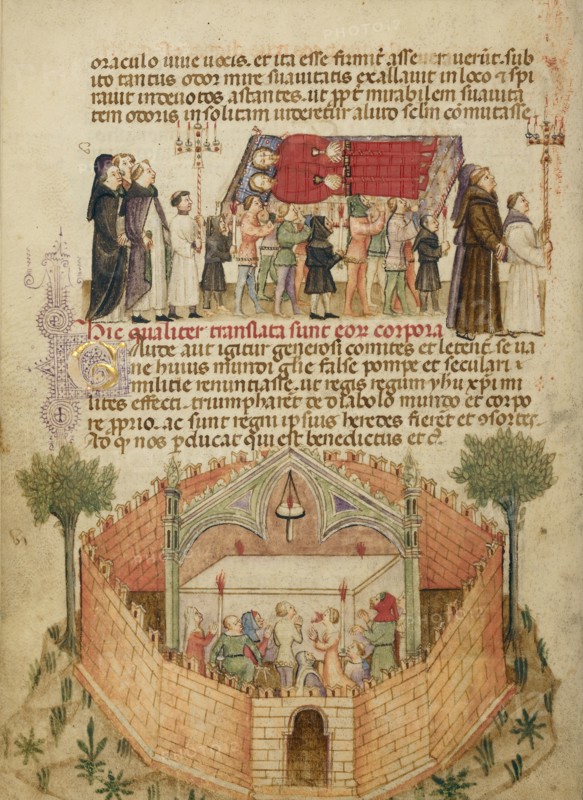 oraculo uiue uocis. et ita esse firmit̄ asseruerūt. sub
ito tantus odor mire suauitatis exallauit in loco ⁊ spi
rauit in deuotos astantes. ut ꝓpt̄ mirabilem suauita
tem odoris insolitam uideretur aliuto selm cōmutasse
Hic qualiter translata sunt eoꝝ corpora
Gaude aut igitur generosi comites et letent̄. se ua
ne huius mundi glīe false pompe et seculari
militie renuntiasse. ut regis regum yhu xp̄i mi
lites effecti. triumpharēt de diabolo mundo et corpo
re ꝓprio. ac sunt regni ipsius heredes fierēt et ꝯsortes.
Ad qͦ nos ꝑducat qui est benedictus et c̄.